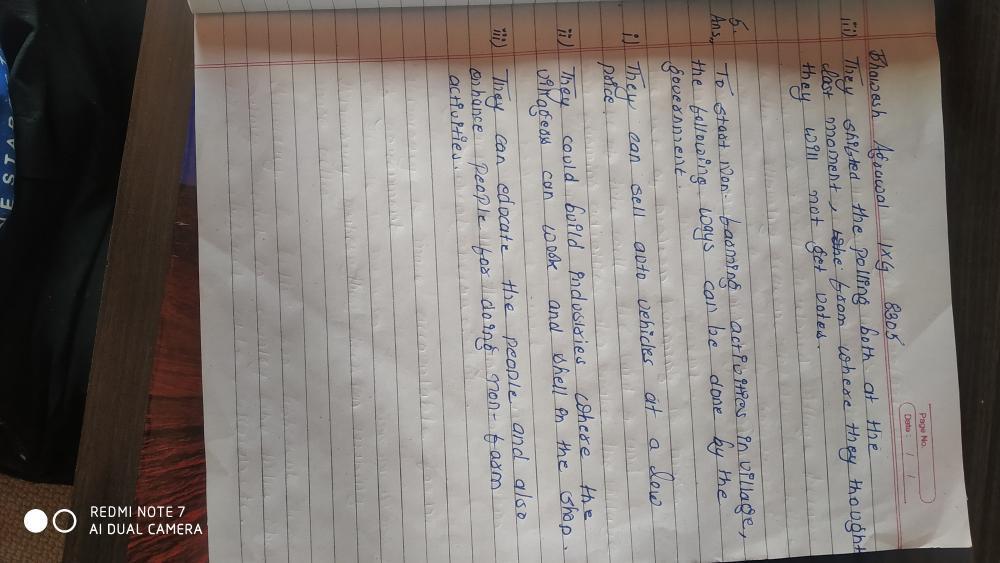 Page No.
Date: / /
Bhawesh Agrawal IXG 8305
iii) They shifted the polling both at the
last moment, from where they thought
they will not get votes.
5.
Ans., To start non-farming activities in village,
the following ways can be done by the
government.
i) They can sell auto vehicles at a low
price.
ii) They could build industries where the
villagers can work and shell in the shop.
iii) They can edocate the people and also
enhance people for doing non-farm
activities.
REDMI NOTE 7
AI DUAL CAMERA